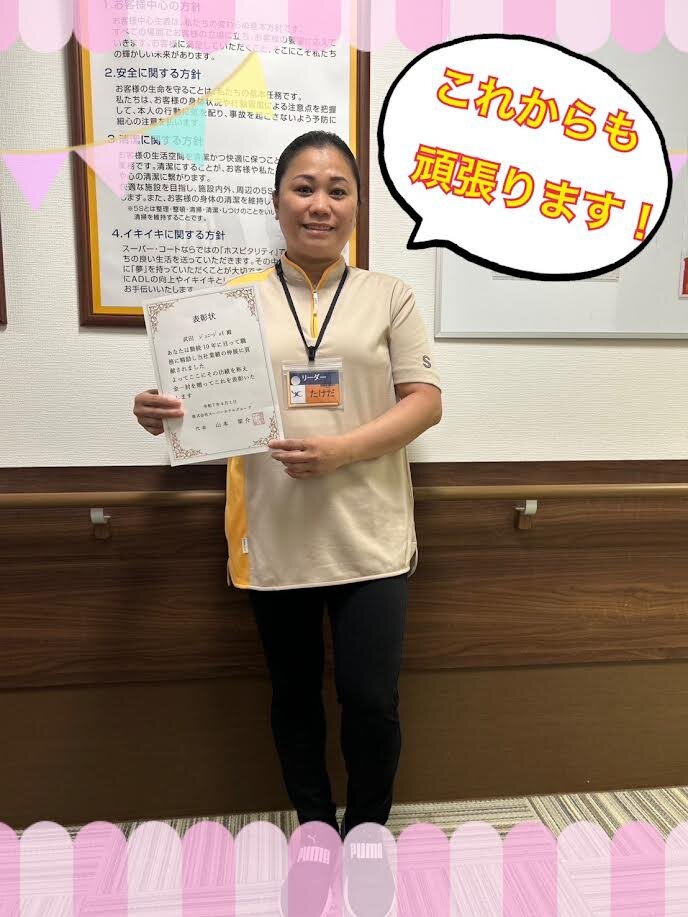 1.お客様中心の方針
お客様中心主義は、私たちの変わらぬ基本方針です。
すべての場面でお客様の立場に立ち、お客様の要望に応えて
いきます。お客様に満足していただくこと、そこにこそ私たち
の輝かしい未来があります。
2.安全に関する方針
お客様の生命を守ることは、私たちの基本任務です。
私たちは、お客様の身体状況や行動習慣による注意点を把握
して、本人の行動に気を配り、事故を起こさないよう予防に
細心の注意を払います。
3.清潔に関する方針
お客様の生活空間を清潔かつ快適に保つこと
務です。清潔にすることが、お客様や私た
や心の清潔に繋がります。
適な施設を目指し、施設内外、周辺の5S
します。また、お客様の身体の清潔を維持し
※5Sとは整理・整頓・清掃・清潔・しつけのことをいい
清掃を維持することです。
4.イキイキに関する方針
スーパー・コートならではの「ホスピタリティ」で
ちの良い生活を送っていただきます。その中
に「夢」を持っていただくことが大切で
にADLの向上やイキイキとし
お手伝いいたします。
これからも
頑張ります！
表彰状
武田 殿
あなたは勤続10年に亘って職
務に精励し当社業績の伸展に貢
献されました
よってここにその功績を称え
金一封を贈ってこれを表彰いた
します
令和7年4月1日
株式会社スーパーホテルグループ
代表 山本 晃介
リーダー
たけだ
S
PUMA
PUMA